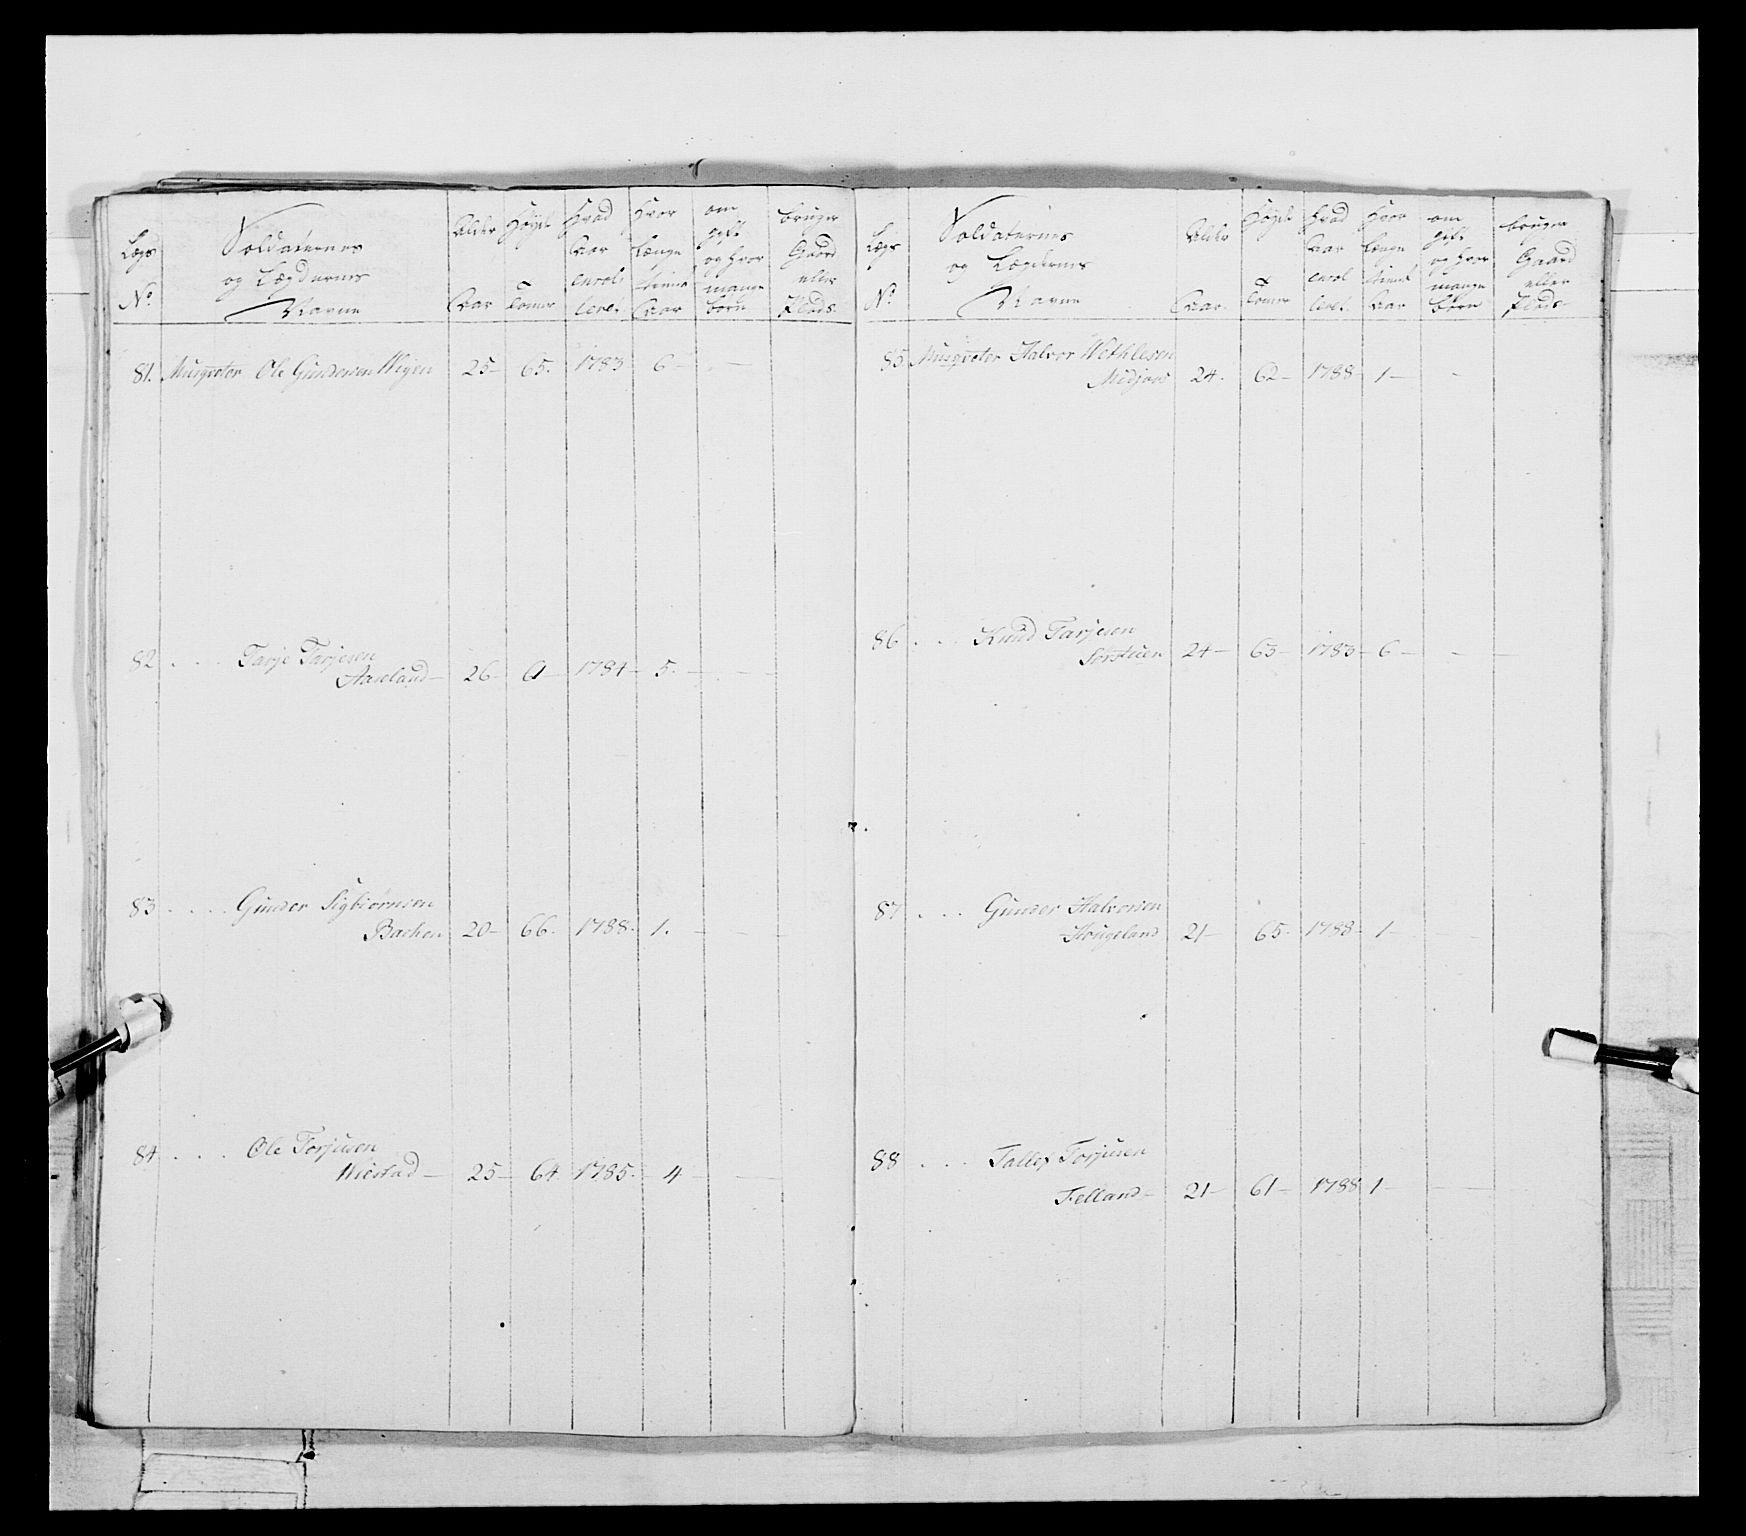 Lægs No | Soldaternes og Lægdernes Navne | Alder Aar | Høyde Tomer | Hvad Aar enrol leret | Hvor Længe tient Aar | om gift og hvor mange børn | bruger Gaard eller Plads
81. Musqueter Ole Gundersen Wigen 25 – 65. 1783 6 – –
82 . . . Tarje Tarjesen
Aaseland – 26 – 61 – 1784 – 5. – –
83 . . . . Gunder Sigbiørnsen
Bachen 20 – 66. 1788. 1. – –
84 . . . Ole Torjusen
Wiestad – 25 – 64 1785. – 4 – –
Lægs No | Soldaternes og Lægdernes Navne | Alder Aar | Høyde Tomer | Hvad Aar enrol leret. | Hvor Længe tient Aar | om gift og hvor mange børn | bruger Gaard eller Plads
85 Musqueter Halvor Wethlesen
24. 62 – 1788 – 1 – –
86 . . . Knud Tarjesen
24 – 63 – 1783 – 6 – –
87 . . . Gunder Halvorsen
Hougeland 21 – 65. 1788 – 1 –
88 . . . Tallef Torjusen
Felland – 21 – 61 – 1788 1 – –